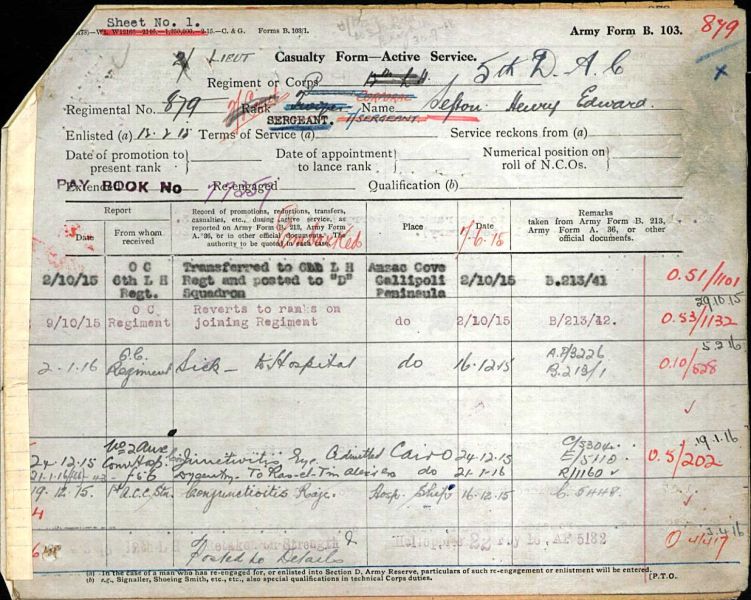 Sheet No. 1.
W12165—2165. 1,250,000. 2-15.—C. & G. Forms B. 103/1.
Army Form B. 103.
879
2/ LIEUT
Casualty Form—Active Service.
Regiment or Corps 5th D. A. C
Regimental No. 879 Rank CORPORAL Name Sefton Henry Edward.
SERGEANT. T/SERGEANT.
Enlisted (a) 12.2.15 Terms of Service (a) Service reckons from (a)
Date of promotion to present rank
Date of appointment to lance rank
Numerical position on roll of N.C.Os.
PAY BOOK No
Extended Re-engaged Qualification (b)
Report
Date
From whom received
Record of promotions, reductions, transfers, casualties, etc., during active service, as reported on Army Form B. 213, Army Form A. 36, or in other official documents. The authority to be quoted in each case.
Place
Date
Remarks
taken from Army Form B. 213, Army Form A. 36, or other official documents.
Embarked
6.15
2/10/15 O C 6th L H Regt. Transferred to 6th L H Regt and posted to "D" Squadron Anzac Cove Gallipoli Peninsula 2/10/15 B.213/41 0.51/1101
29.10.15
9/10/15 O C Regiment Reverts to ranks on joining Regiment do 2/10/15 B/213/42. 0.53/1132
5.2.16
2.1.16 O.C. Regiment Sick — to Hospital do 16.12.15 A.F/3226 B.213/1 0.10/528
19.1.16
24.12.15 No 2 Aux Conv. Hosp. Conjunctivitis Eye. Admitted Cairo 24.12.15 C/5304 E/5110 0.5/202
21.1.16 Dysentry. To Ras-el-Tin do 21.1.16 R/1160
19.12.15. 1st A.C.C. Stn. Conjunctivitis Hosp. Ship 16.12.15 C. 5448.
12th L H Taken on Strength & Heliopolis 22 AF 5182
Posted to Details
(a) In the case of a man who has re-engaged for, or enlisted into Section D, Army Reserve, particulars of such re-engagement or enlistment will be entered.
(b) e.g., Signaller, Shoeing Smith, etc., etc., also special qualifications in technical Corps duties.
[P.T.O.